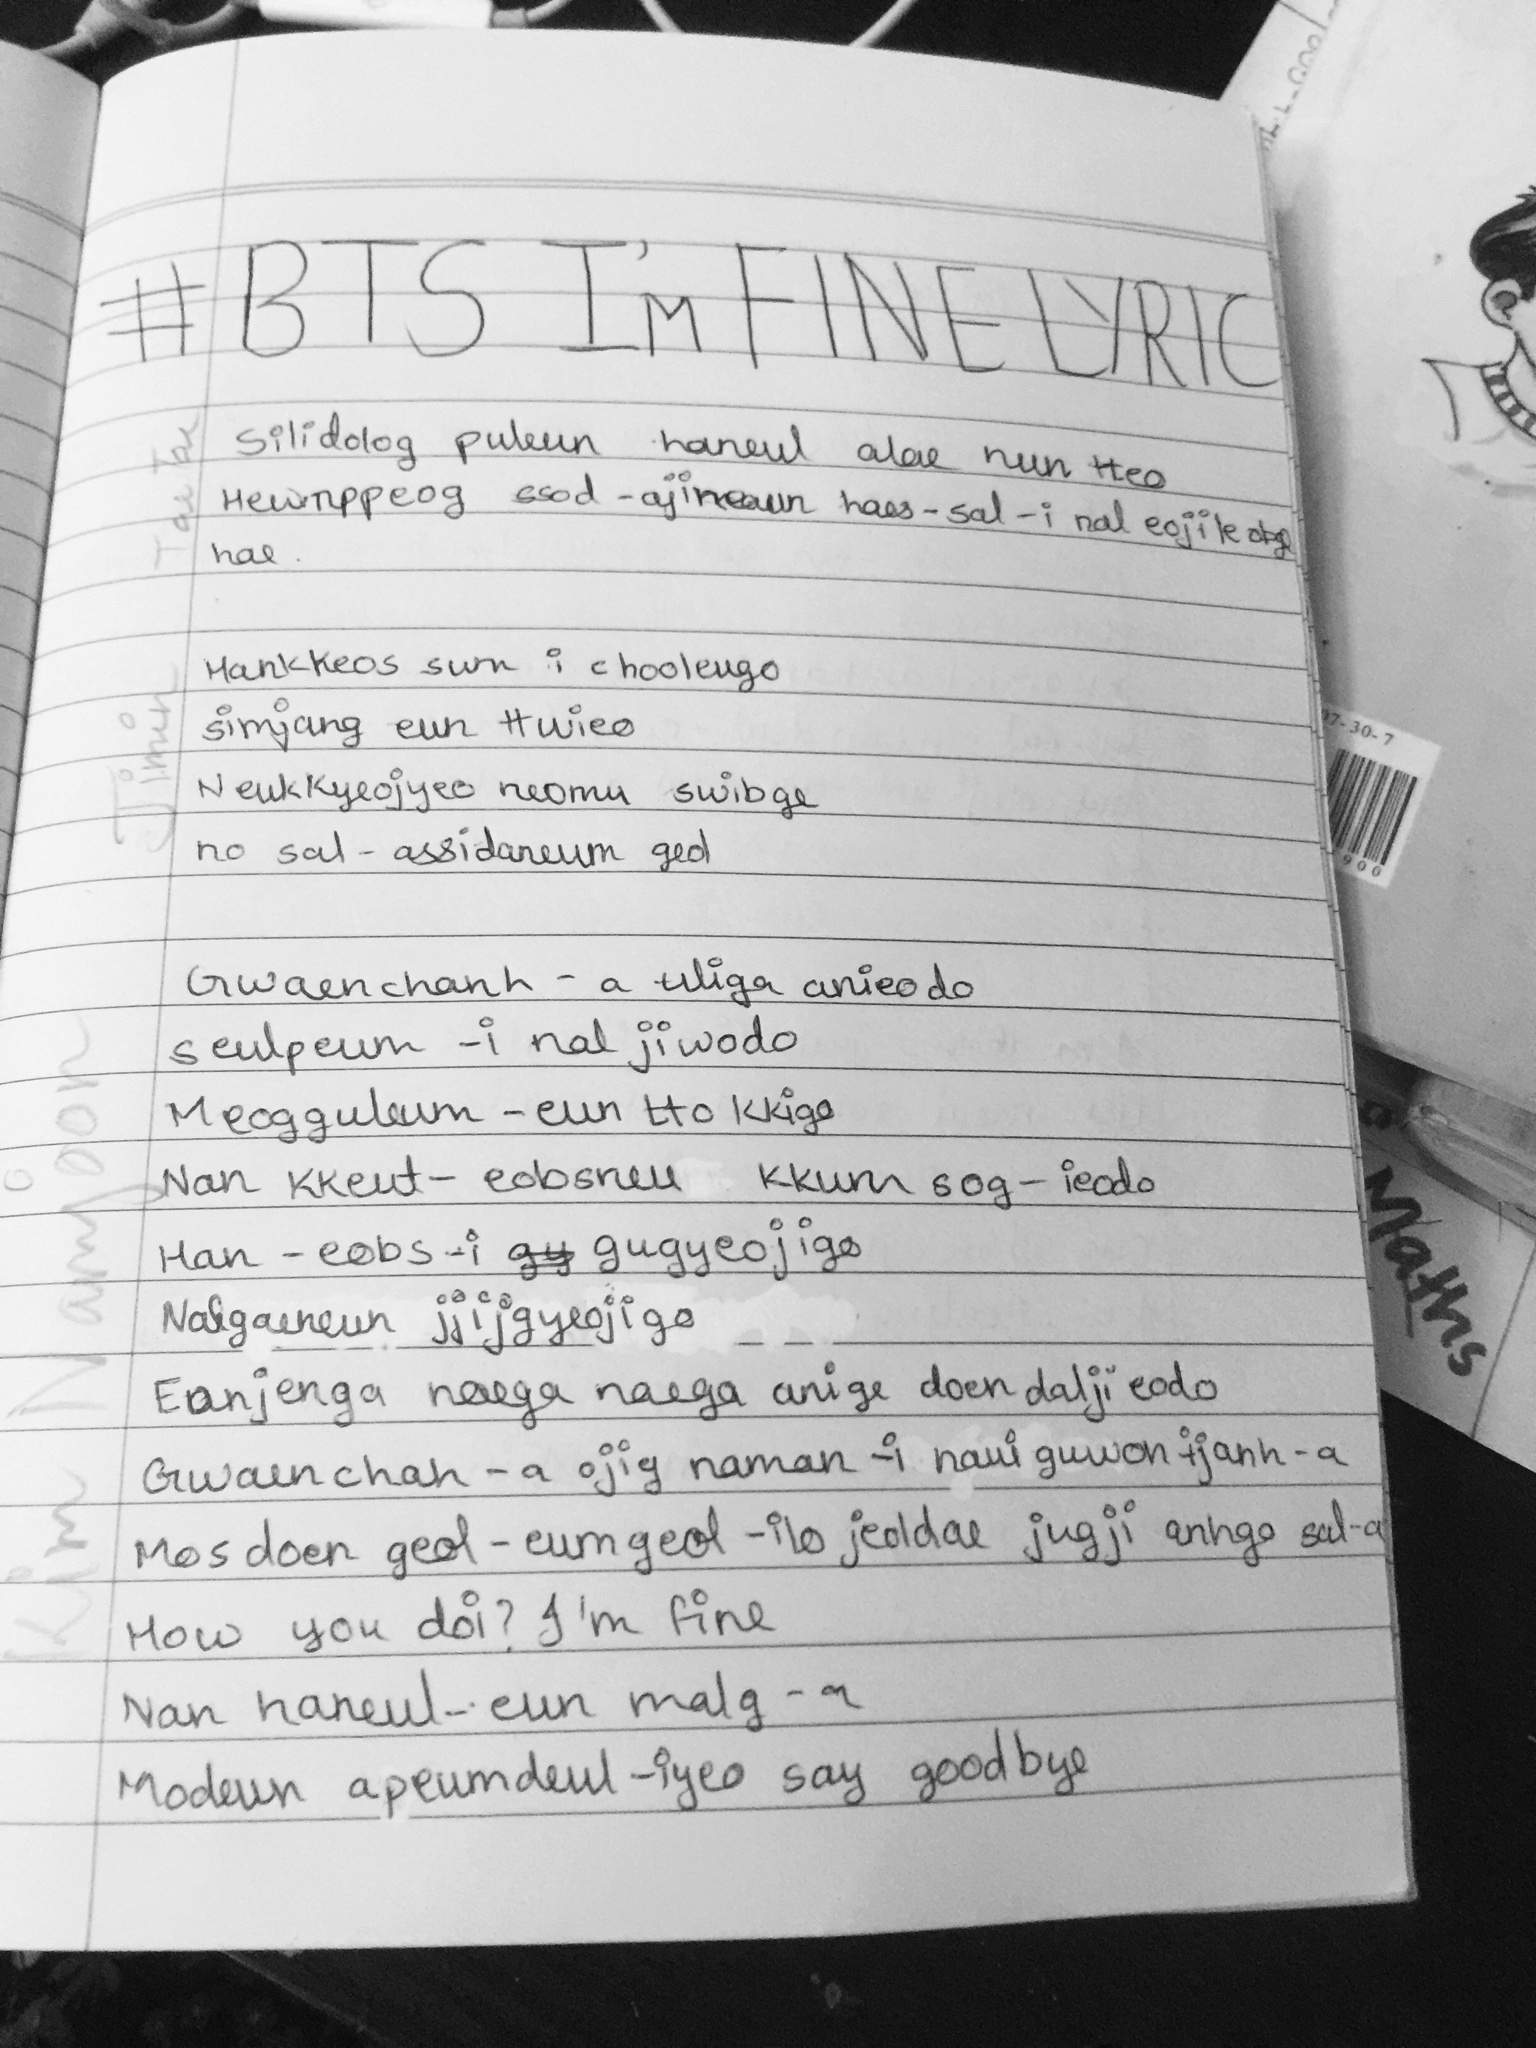 #BTS I'm FINE LYRIC
Tae Tae
Silidolog puleun haneul alae nun tteo
Heumppeog ssod-ajineun haes-sal-i nal eojileobge
hae.
Jimin
Hankkeos sum i choolеugo
simjang eun ttwieo
Neukkyeojyeo neomu swibge
no sal-assidaneum geol
Kim Namjoon
Gwaenchanh-a uliga anieodo
seulpeum-i nal jiwodo
Meogguleum-eun tto kkigo
Nan kkeut-eobsneu kkum sog-ieodo
Han-eobs-i gugyeojigo
jjijgyeojigo
Eonjenga naega naega anige doen daljieodo
Gwaenchah-a ojig naman-i naui guwon ijanh-a
Mosdoen geol-eumgeol-ilo jeoldae jugji anhgo sal-a
How you doi? I'm fine
Nan haneul-eun malg-a
Modeun apeumdeul-iyeo say goodbye
97-30-7
900
Maths